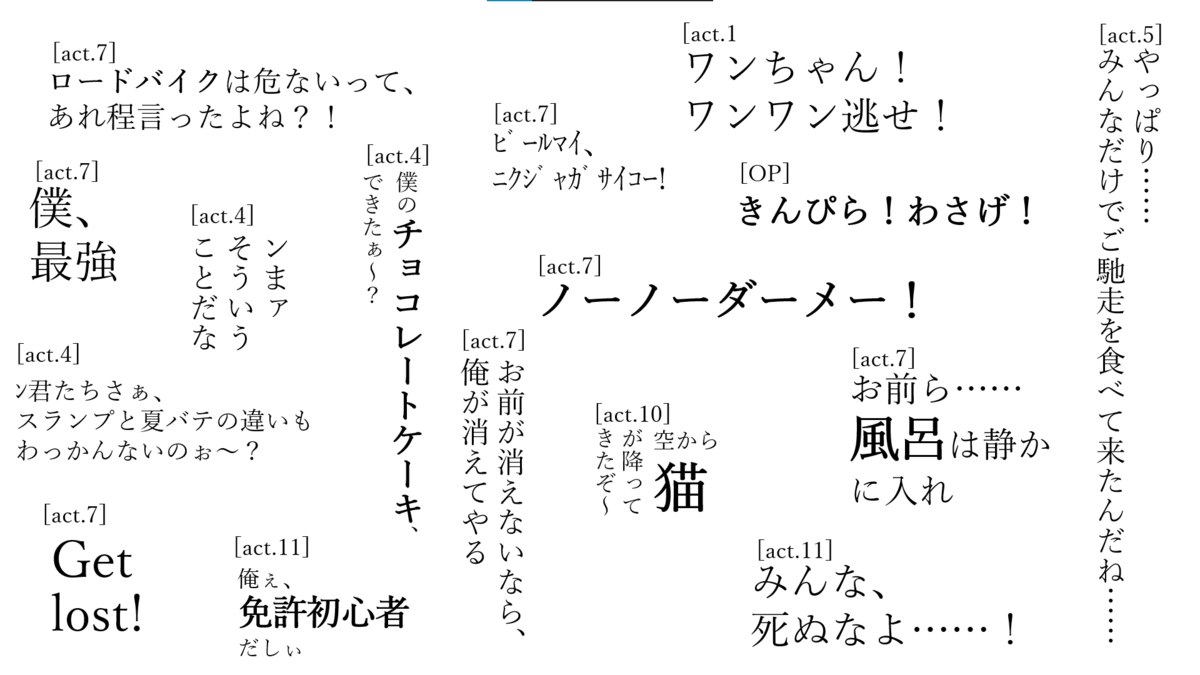 [act.7]
ロードバイクは危ないって、
あれ程言ったよね？！
[act.7]
僕、
最強
[act.4]
ンまァ
そういう
ことだな
[act.4]
僕のチョコレートケーキ、
できたぁ～？
[act.7]
ﾋﾞｰﾙﾏｲ、
ﾆｸｼﾞｬｶﾞｻｲｺｰ!
[act.1
ワンちゃん！
ワンワン逃せ！
[OP]
きんぴら！わさげ！
[act.5]
やっぱり……
みんなだけでご馳走を食べて来たんだね……
[act.7]
ノーノーダーメー！
[act.4]
ﾝ君たちさぁ、
スランプと夏バテの違いも
わっかんないのぉ～？
[act.7]
お前が消えないなら、
俺が消えてやる
[act.10]
空から
猫
が降って
きたぞ～
[act.7]
お前ら……
風呂は静か
に入れ
[act.7]
Get
lost!
[act.11]
俺ぇ、
免許初心者
だしぃ
[act.11]
みんな、
死ぬなよ……！